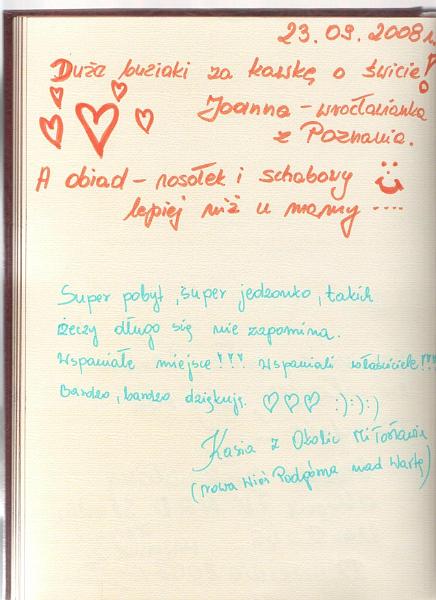 23.09.2008r.
Duże buziaki za kawskę o świcie!
Joanna - wrocławianka
z Poznania.
A obiad - rosołek i schabowy
lepiej niż u mamy ....
Super pobyt, super jedzonko, takich
rzeczy długo się nie zapomina.
Wspaniałe miejsce!!! Wspaniali właściciele!!!
Bardzo, bardzo dziękuję. ♡♡♡ :):):)
Kasia z Okolic Miłosławia
(Nowa Wieś Podgórna nad Wartą)